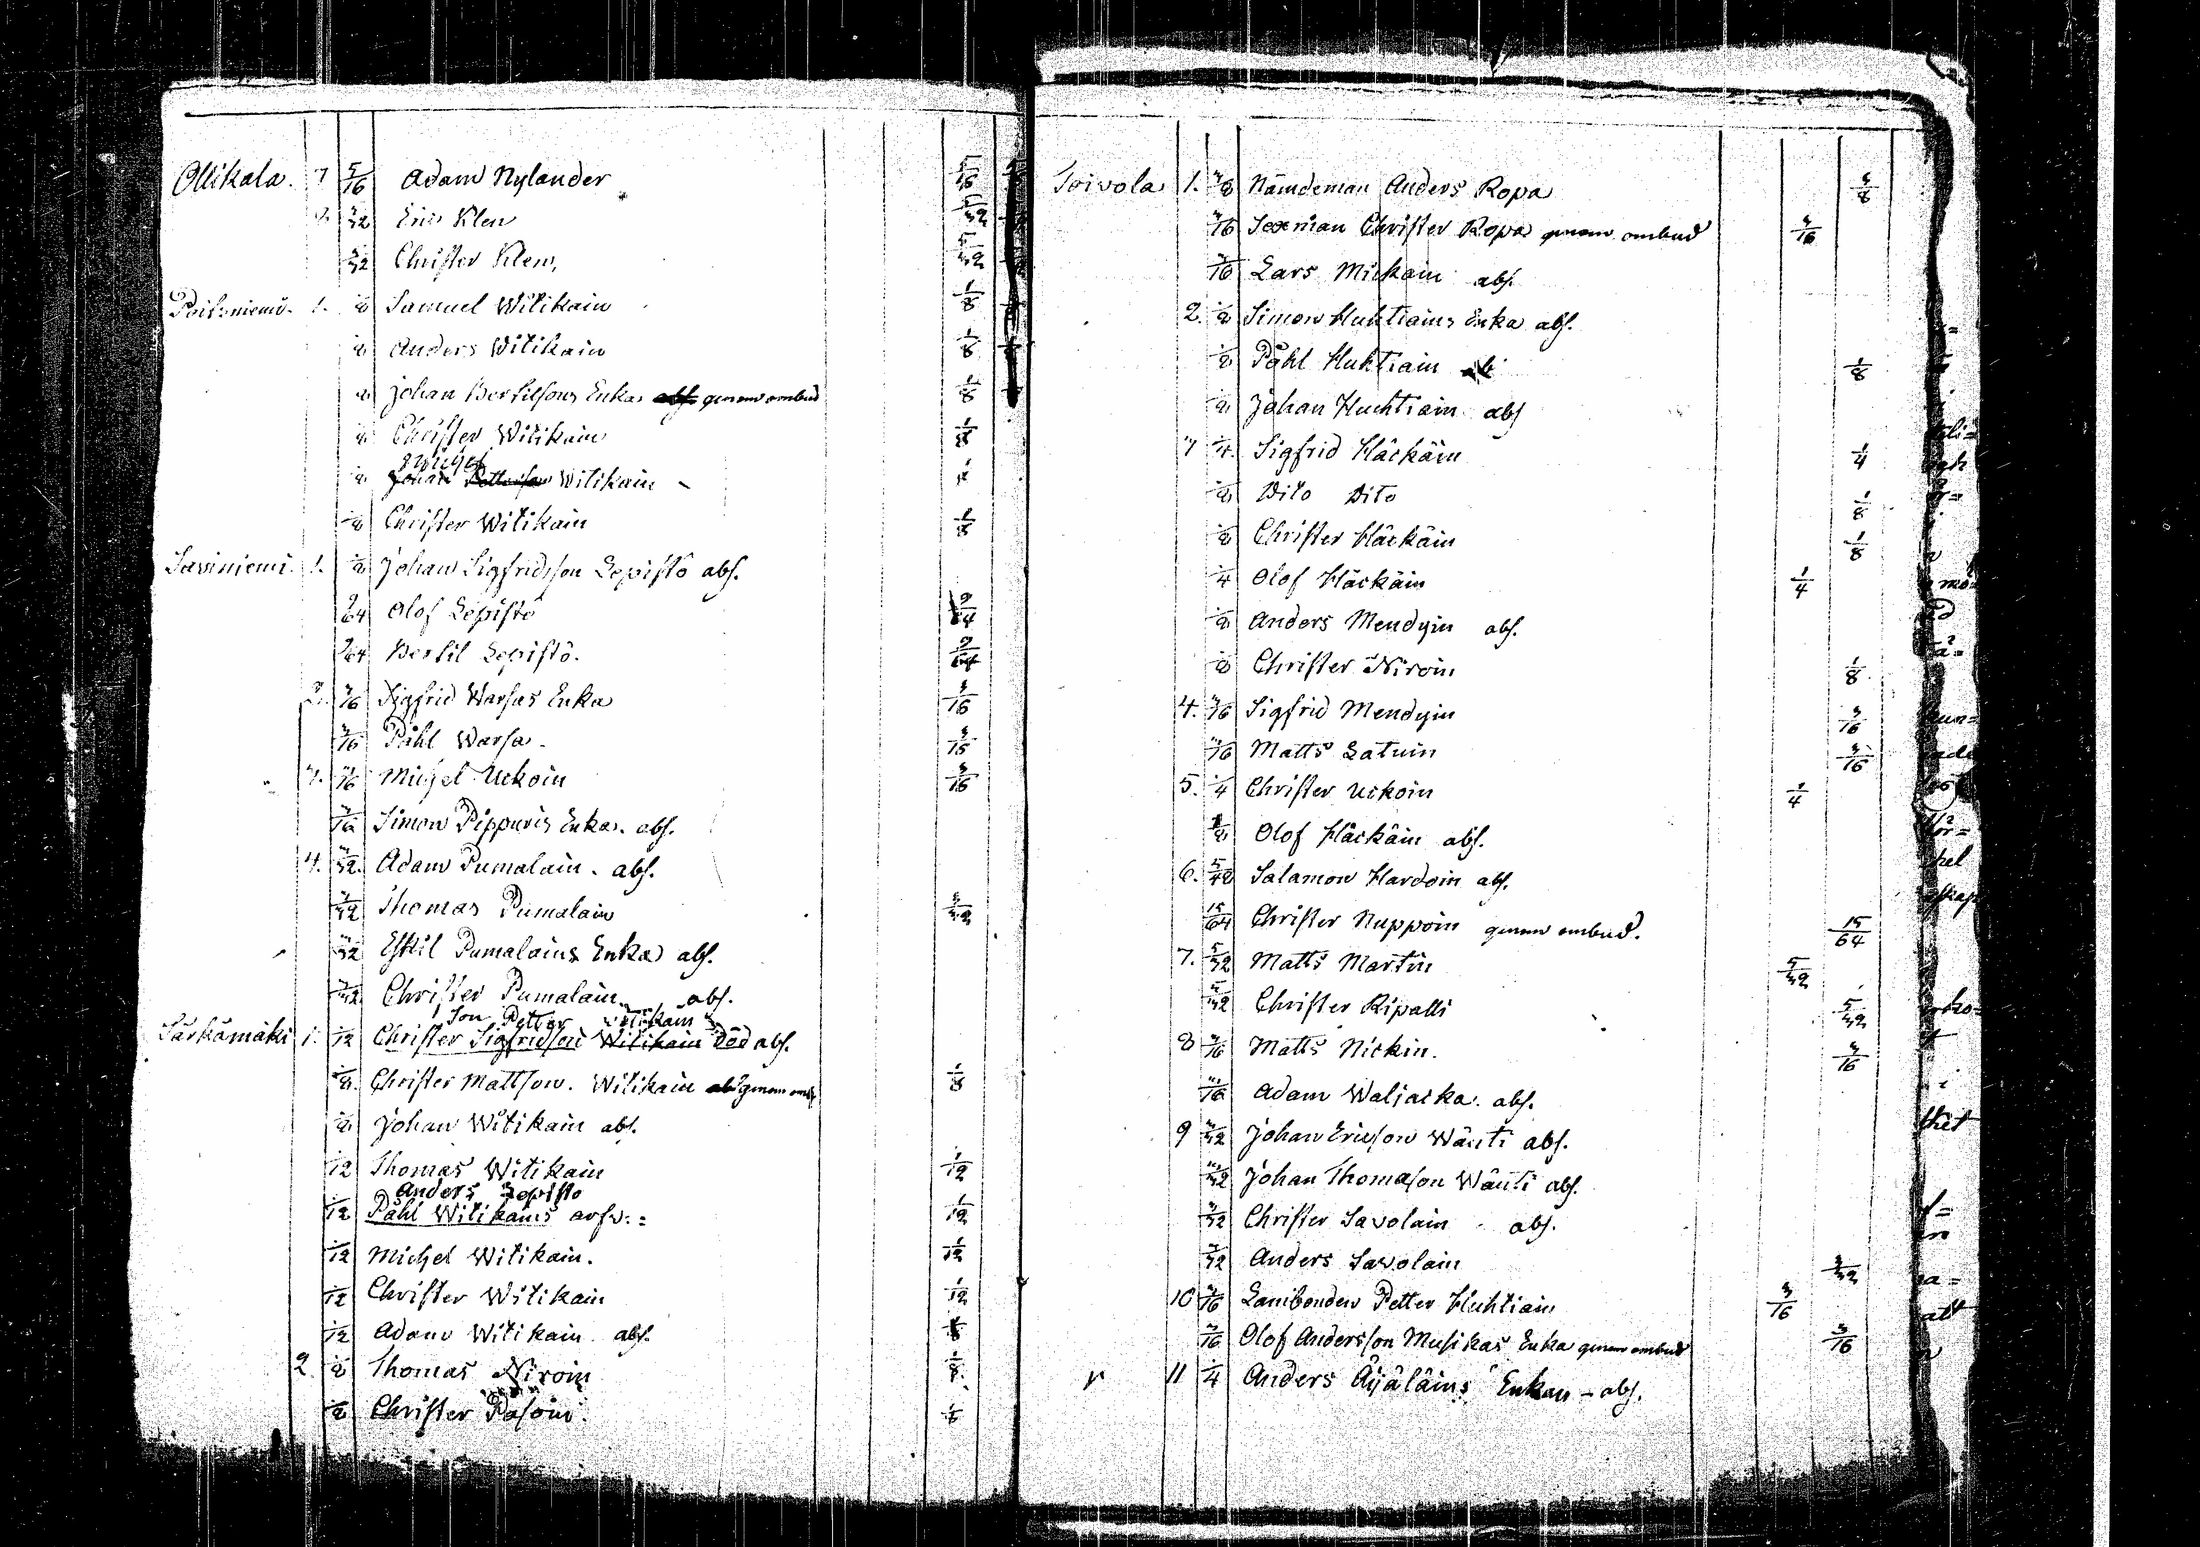 Ollikala. 5/16 Adam Nylander 5/16
5/32 Eric Klen 5/32
5/32 Christer Klen, 5/32
1. 1/8 Samuel Witikain 1/8
1/8 Anders Witikain 1/8
1/8 Johan Bertilsons Enka genom ombud 1/8
1/8 Christer Witikain 1/8
Michel
1/8 Johan Petterson Witikain
1/8 Christer Witikain 1/8
Saviniemi. 1. 1/8 Johan Sigfridsson Lepistö abs.
9/64 Olof Lepistö 9/64
9/64 Bertil Lepistö. 9/64
2. 3/16 Sigfrid Warsas Enka 3/16
3/16 Påhl Warsa. 3/16
3. 3/16 Michel Uckoin 3/16
3/16 Simon Pippuris Enka. abs.
4. 3/32 Adam Pumalain. abs.
3/32 Thomas Pumalain 3/32
3/32 Eskil Pumalains Enka abs.
3/32 Christer Pumalain abs.
Son Petter Witikain
Särkämäki 1. 1/12 Christer Sigfridson Witikain Död abs.
1/8 Christer Mattson. Witikain genom omb 1/8
1/8 Johan Witikain abs.
1/12 Thomas Witikain 1/12
Anders Lepisto
1/12 Påhl Witikains arfv: 1/12
1/12 Michel Witikain. 1/12
1/12 Christer Witikain 1/12
1/12 Adam Witikain abs.
2. 1/8 Thomas Niroin 1/8
1/8 Christer Pasoin. 1/8
Toivola 1. 3/8 Nämdeman Anders Ropa 3/8
3/16 Sexman Christer Ropa genom ombud 3/16
3/16 Lars Mickain abs.
2. 1/8 Simon Huhtiains Enka abs.
1/8 Påhl Huhtiain 1/8
1/8 Johan Huhtiain abs
3 1/4 Sigfrid Häckäin 1/4
1/8 Dito Dito 1/8
1/8 Christer Häckäin 1/8
1/4 Olof Häckäin 1/4
1/8 Anders Mendyin abs.
1/8 Christer Niroin 1/8
4. 3/16 Sigfrid Mendyin 3/16
3/16 Matts Latuin 3/16
5. 1/4 Christer Uckoin 1/4
1/8 Olof Häckäin abs.
6. 5/48 Salamon Hardoin abs.
15/64 Christer Nuppoin genom ombud. 15/64
7. 5/32 Matts Martin 5/32
5/32 Christer Ripatti 5/32
8 3/16 Matts Nickin. 3/16
3/16 Adam Waljacka. abs.
9 3/32 Johan Ericson Wänti abs.
3/32 Johan Thomasson Wänti abs.
3/32 Christer Savolain abs.
3/32 Anders Savolain 3/32
10 3/16 Petter Huhtiain 3/16
3/16 Olof Andersson Musikas Enka genom ombud 3/16
11 1/4 Anders Äijäläins Enkan - abs.